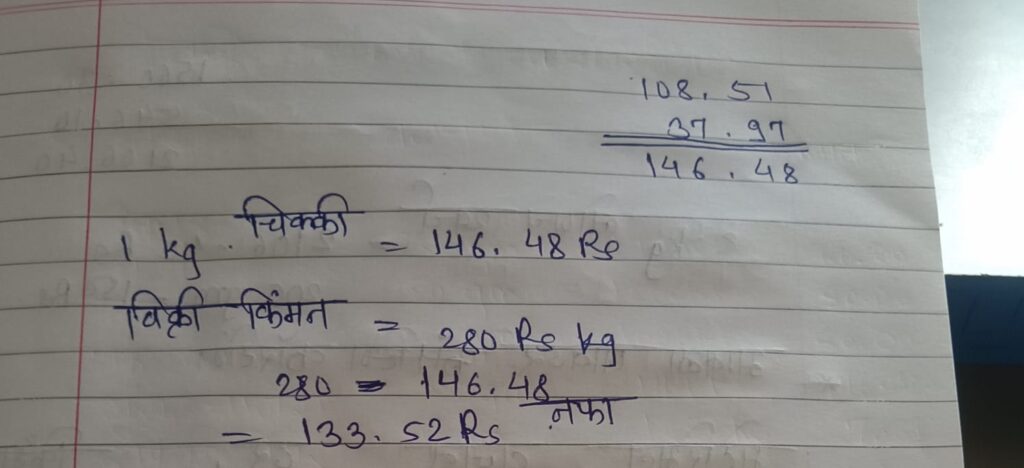 108.51
37.97
146.48
1 kg. चिक्की = 146.48 Rs
विक्री किंमत = 280 Rs kg
280 - 146.48
= 133.52 Rs नफा